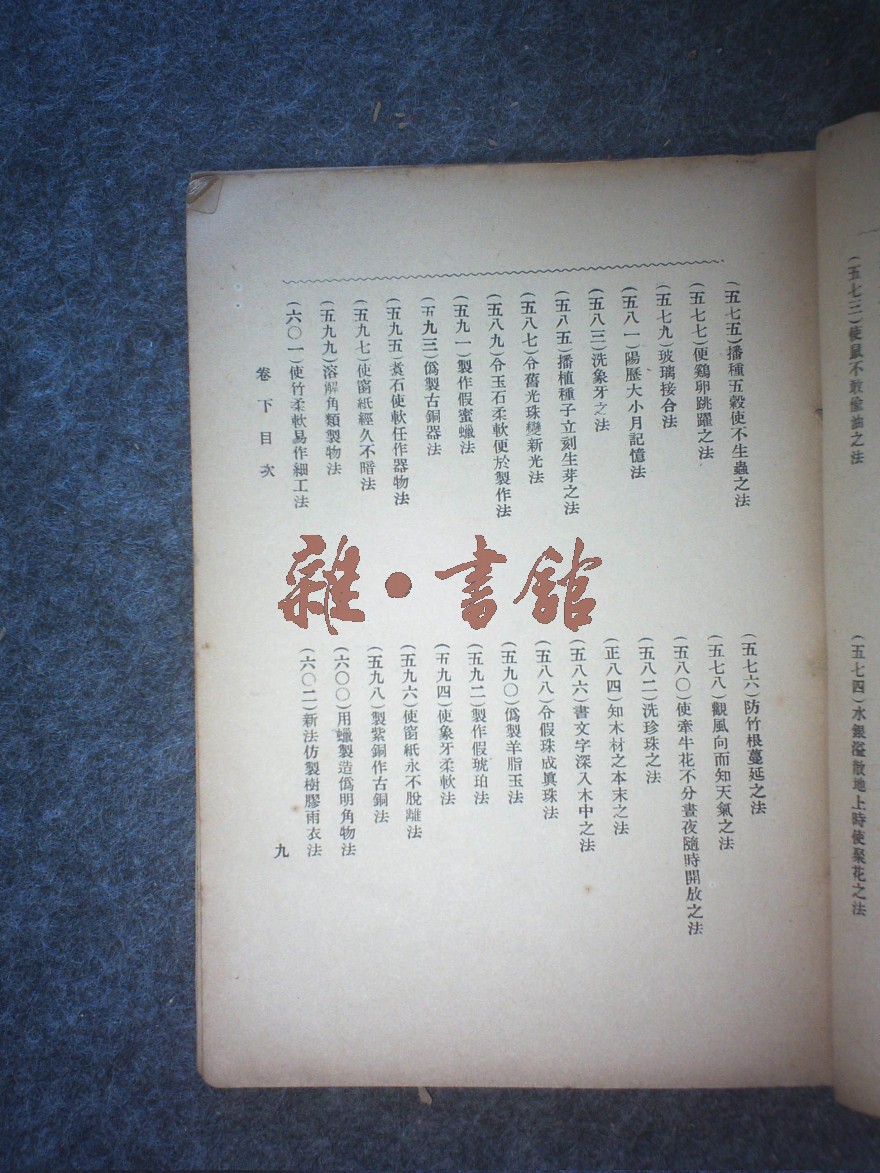 (五七三)使鼠不敢偷油之法
(五七四)水銀溢散地上時使聚花之法
(五七五)播種五穀使不生蟲之法
(五七六)防竹根蔓延之法
(五七七)便鷄卵跳躍之法
(五七八)觀風向而知天氣之法
(五七九)玻璃接合法
(五八〇)使牽牛花不分晝夜隨時開放之法
(五八一)陽歷大小月記憶法
(五八二)洗珍珠之法
(五八三)洗象牙之法
(正八四)知木材之本末之法
(五八五)播植種子立刻生芽之法
(五八六)書文字深入木中之法
(五八七)令舊光珠變新光法
(五八八)令假珠成眞珠法
(五八九)令玉石柔軟便於製作法
(五九〇)僞製羊脂玉法
(五九一)製作假蜜蠟法
(五九二)製作假琥珀法
(五九三)僞製古銅器法
(五九四)使象牙柔軟法
(五九五)煮石使軟任作器物法
(五九六)使窗紙永不脫離法
(五九七)使窗紙經久不暗法
(五九八)製紫銅作古銅法
(五九九)溶解角類製物法
(六〇〇)用蠟製造僞明角物法
(六〇一)使竹柔軟易作細工法
(六〇二)新法仿製樹膠雨衣法
卷下目次
九
雜·書館